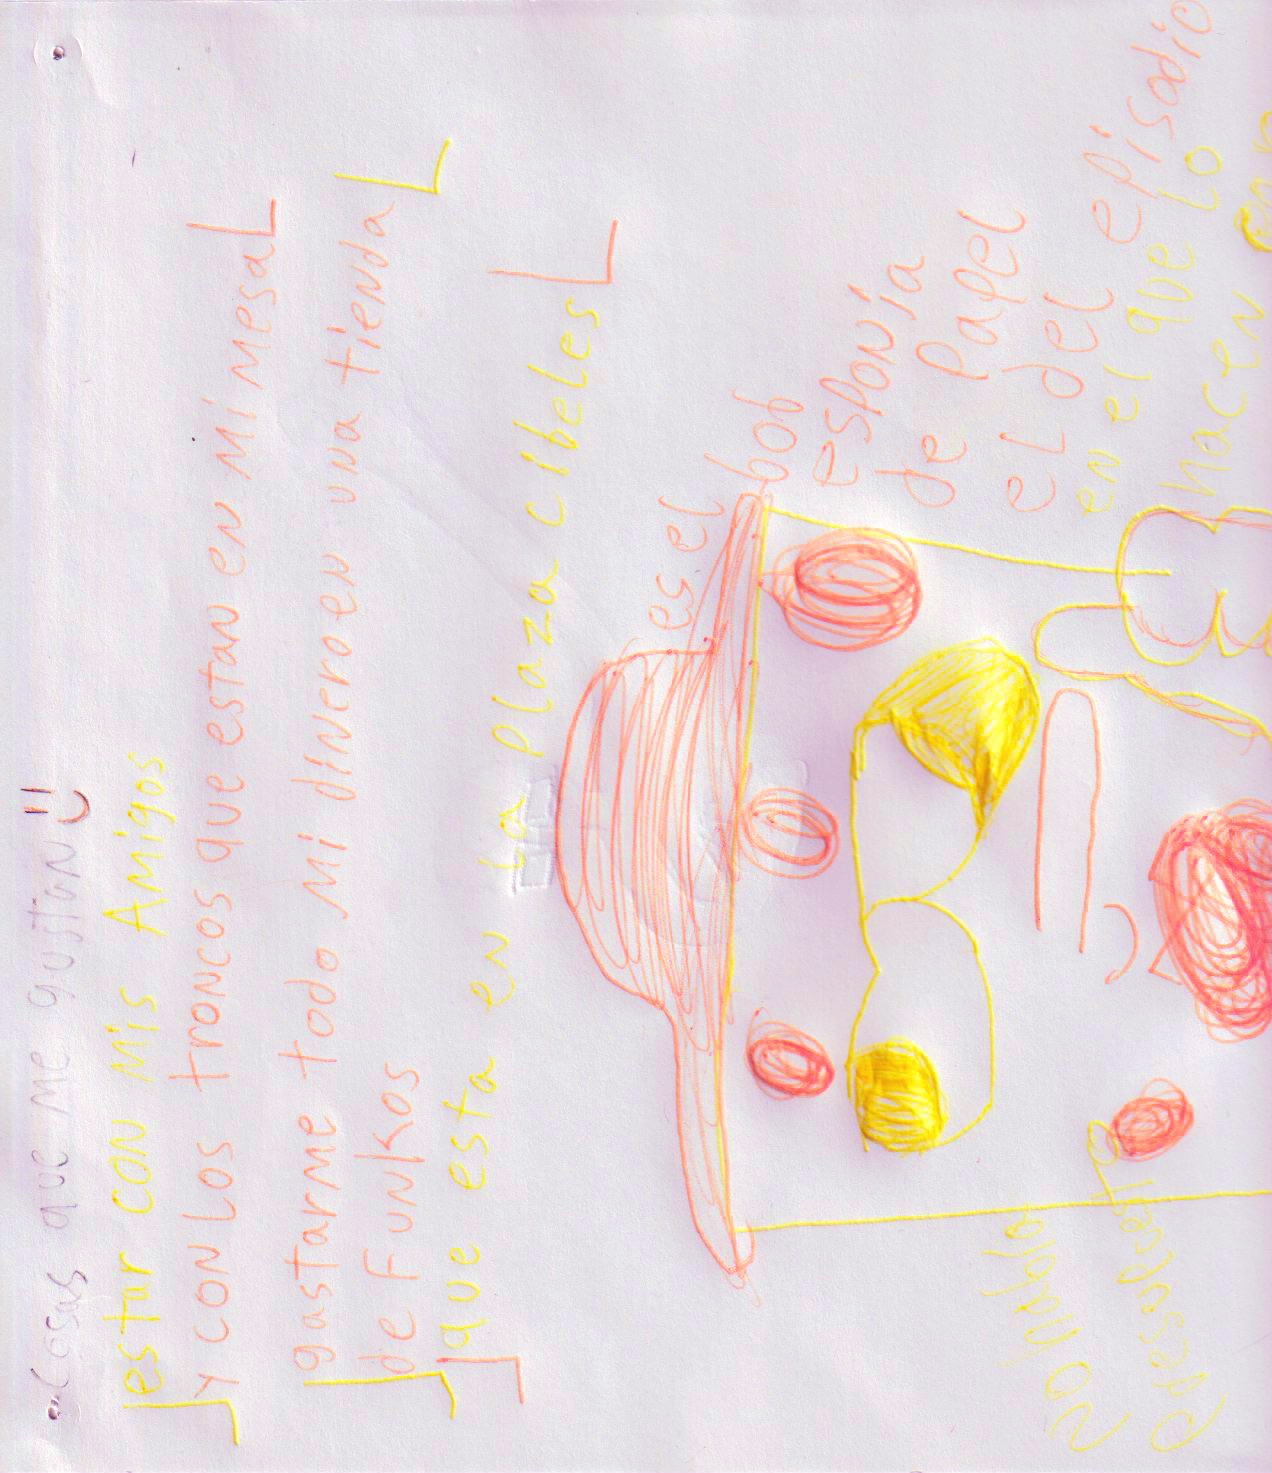 Cosas que me gustan
estar con mis Amigos
y con los troncos que estan en mi mesa
gastarme todo mi dinero en una tienda
de Funkos
que esta en la Plaza cibeles
es el
bob
esponja
de Papel
el del episodio
en el que lo
hacen en
no habla